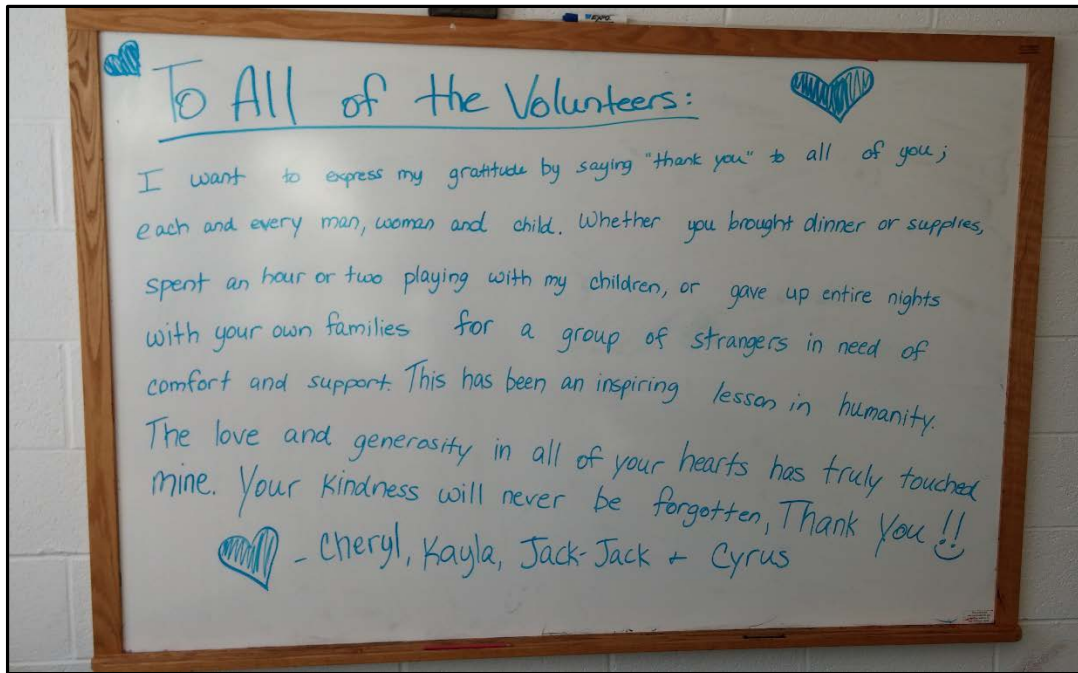 EXPO
To All of the Volunteers:
I want to express my gratitude by saying "thank you" to all of you;
each and every man, woman and child. Whether you brought dinner or supplies,
spent an hour or two playing with my children, or gave up entire nights
with your own families for a group of strangers in need of
comfort and support. This has been an inspiring lesson in humanity.
The love and generosity in all of your hearts has truly touched
mine. Your kindness will never be forgotten, Thank You!!
- Cheryl, Kayla, Jack-Jack + Cyrus